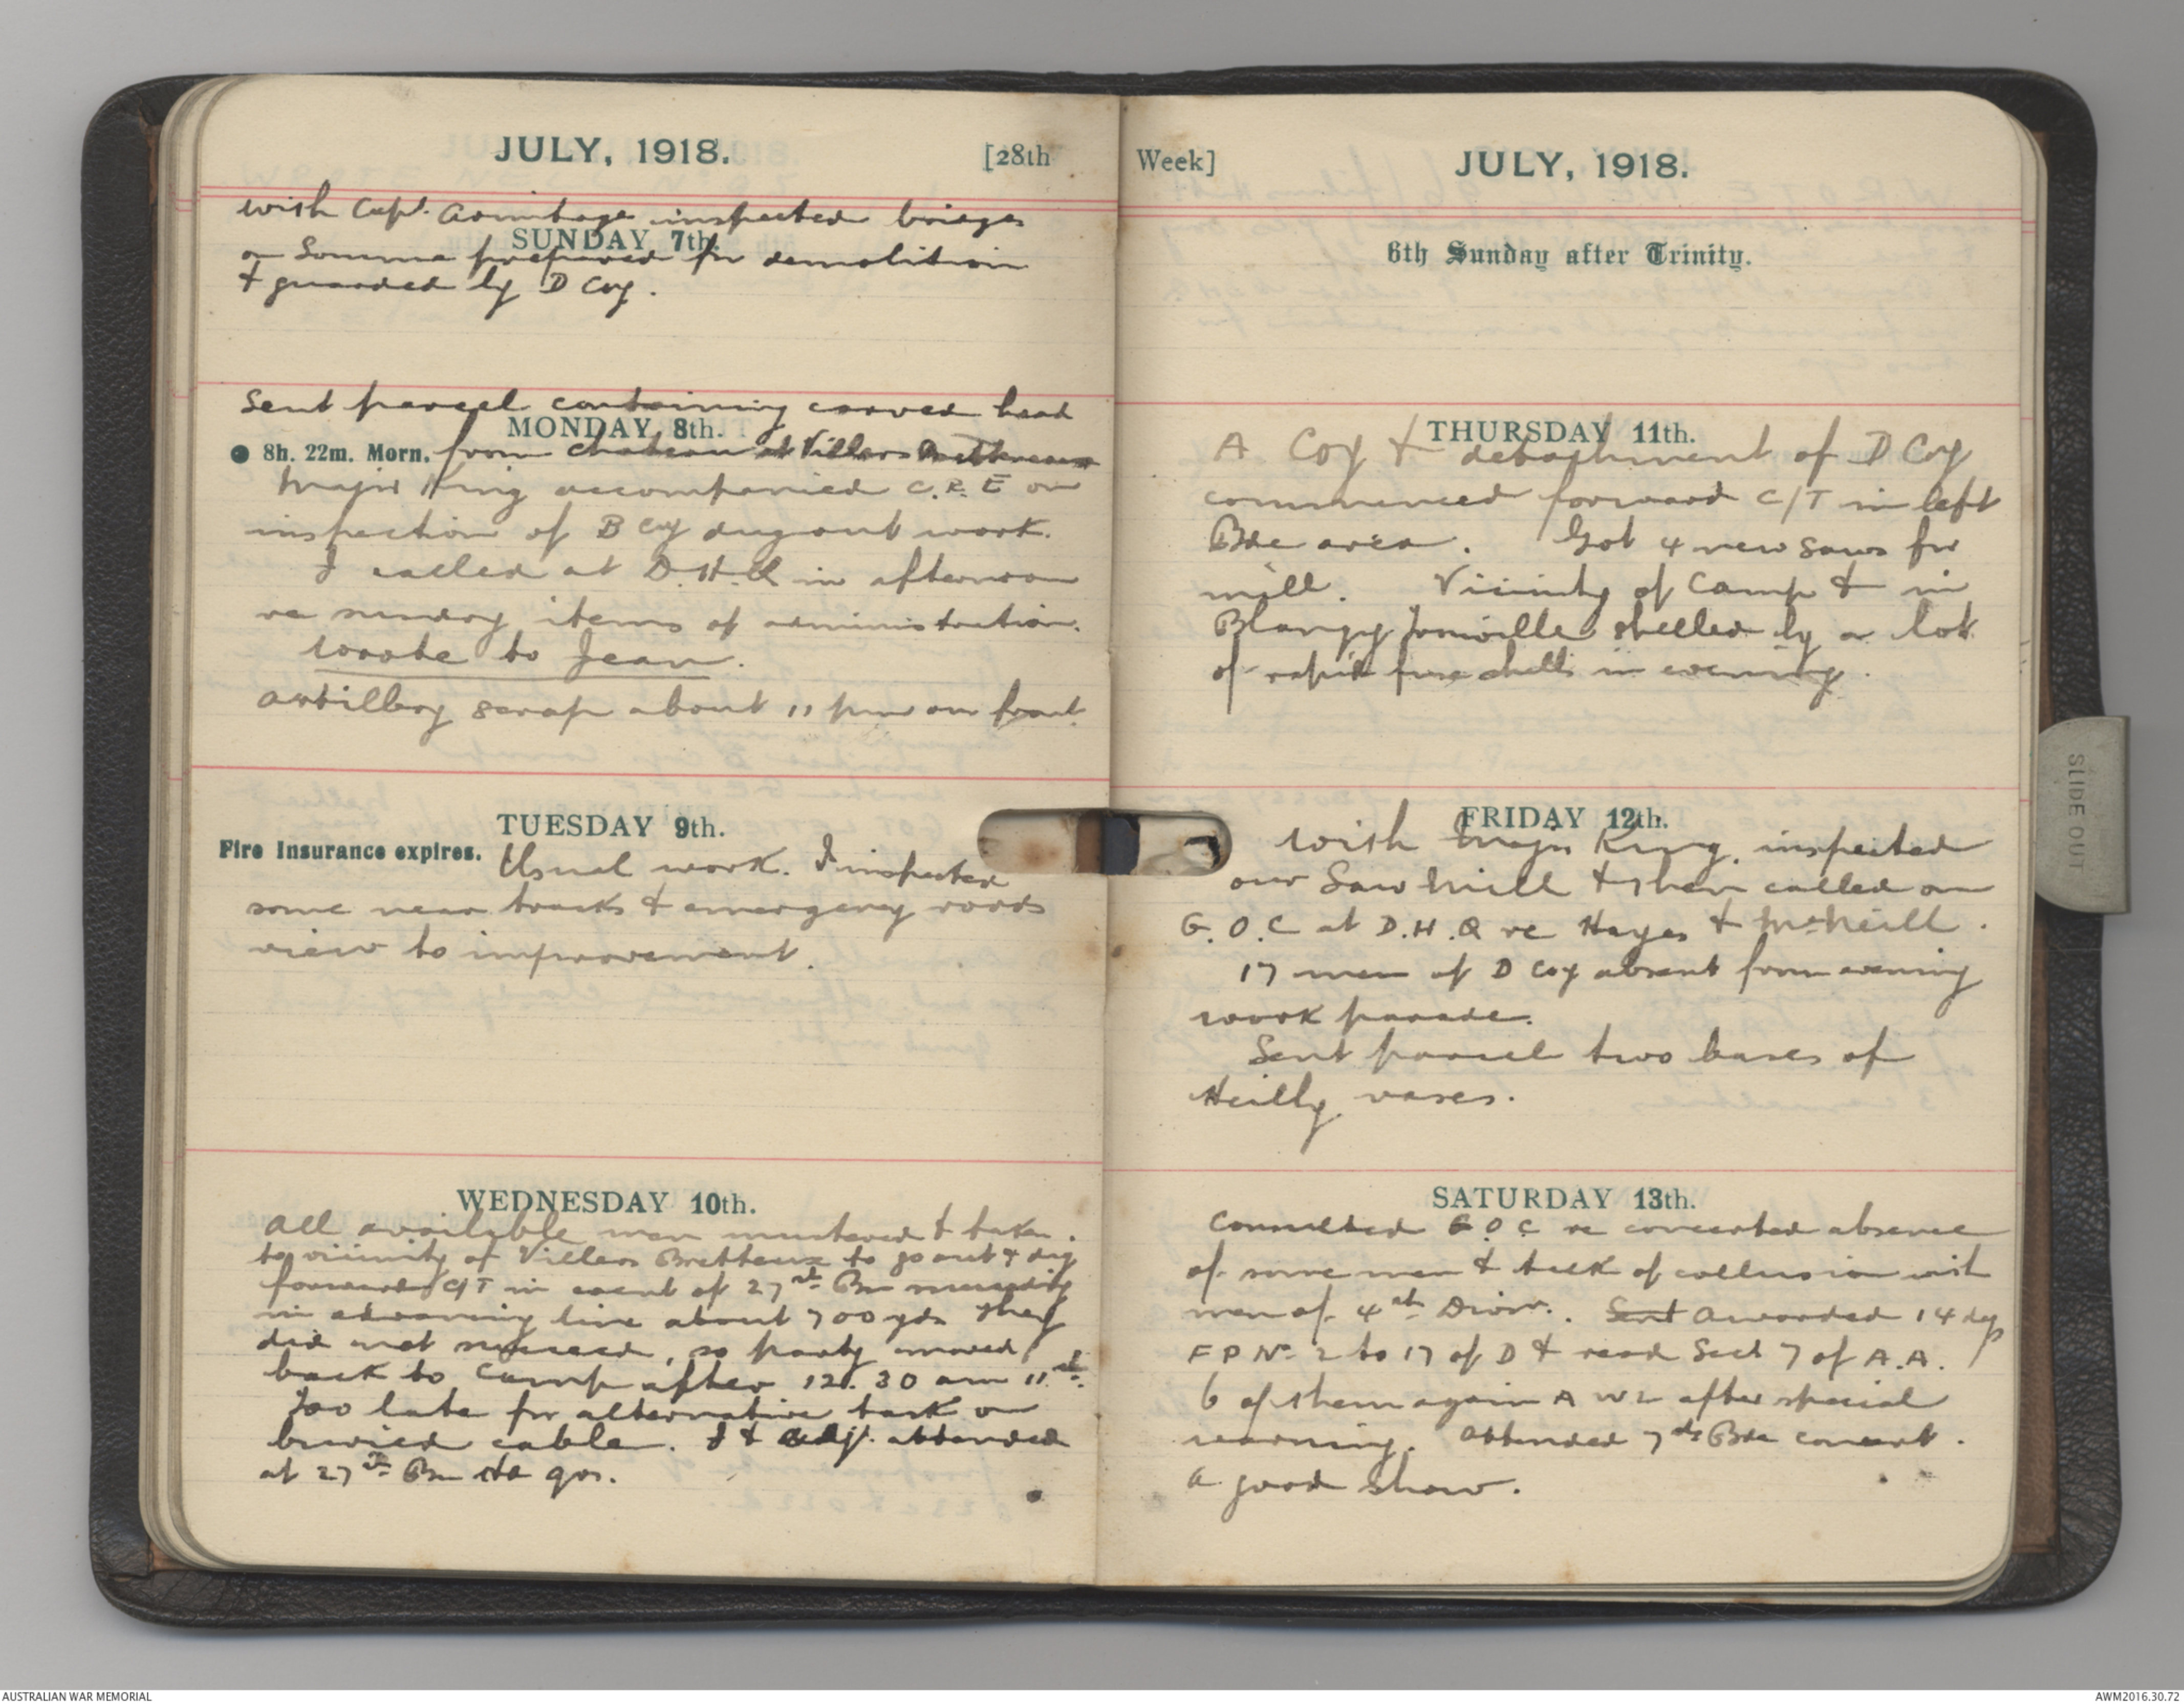 JULY, 1918. [28th
with Capt. Armitage inspected bridges
SUNDAY 7th.
on Somme prepared for demolition
& guarded by D Coy.
Sent parcel containing carved head
MONDAY 8th.
● 8h. 22m. Morn. from Chateau at Villers Brettoneux
Major King accompanied C.R.E on
inspection of B Coy dugout work.
I called at D.H.Q in afternoon
re sundry items of administration.
Wrote to Jean.
Artillery scrap about 11 pm on front.
TUESDAY 9th.
Fire Insurance expires. Usual work. I inspected
some near tracks & emergency roads
view to improvement.
WEDNESDAY 10th.
All available men mustered & taken
to vicinity of Villers Bretteux to go out & dig
forward C/T in event of 27th Bn succeeding
in advancing line about 700 yds They
did not succeed, so party moved
back to Camp after 12.30 am 11th.
Too late for alternative task on
buried cable. I & Adjt. attended
at 27th Bn Hd qrs.
Week] JULY, 1918.
6th Sunday after Trinity.
THURSDAY 11th.
A Coy & detachment of D Coy
commenced forward C/T in left
Bde area. Got 4 new saws for
mill. Vicinity of Camp & in
Blangy Tronville shelled by a lot
of rapid fuse shells in evening.
FRIDAY 12th.
With Major King, inspected
our Saw Mill & then called on
G.O.C at D.H.Q re Hayes & McNeill.
17 men of D Coy absent from evening
work parade.
Sent parcel two bases of
Heilly vases.
SATURDAY 13th.
Consulted G.O.C re concerted absence
of some men & talk of collusion with
men of 4th Divn. Sent Awarded 14 dys
F P No 2 to 17 of D & read Sect 7 of A.A.
6 of them again A W L after special
warning. Attended 7th Bde concert.
A good show.
SLIDE OUT
AUSTRALIAN WAR MEMORIAL
AWM2016.30.72